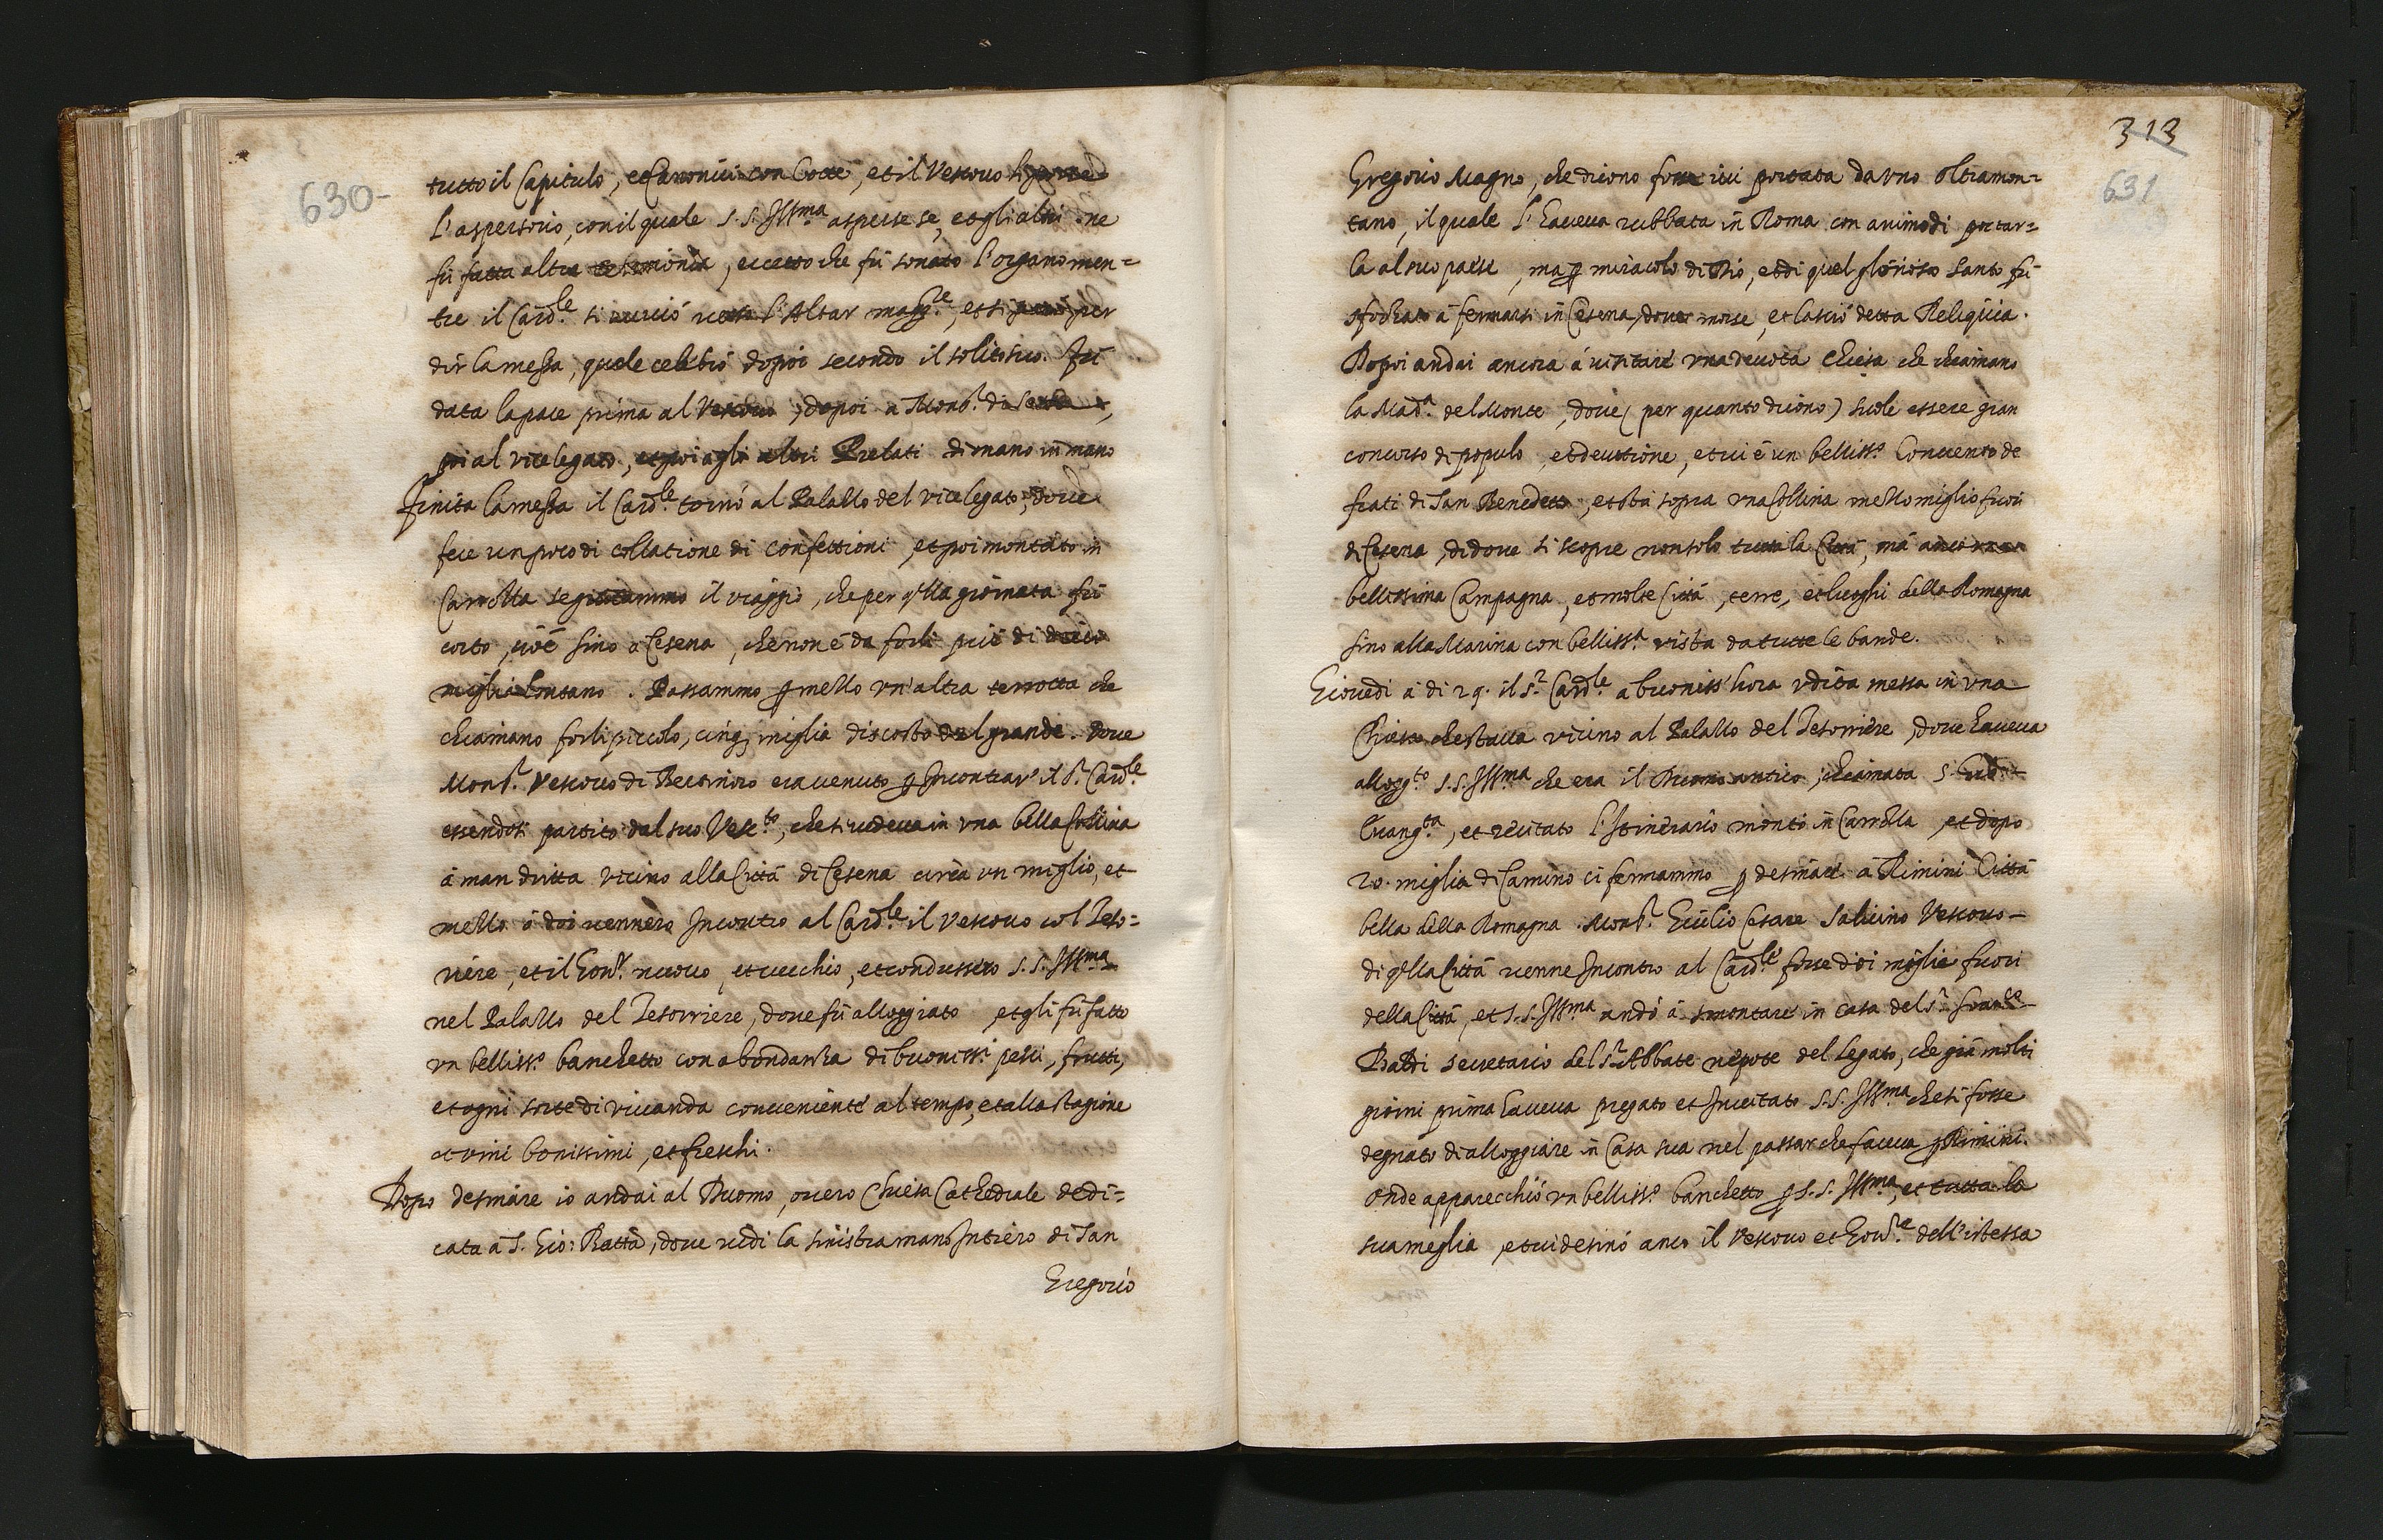 630-
tutto il Capitulo, et Canonici con Cotte, et il Vescouo li porse
l'aspersorio, con il quale S. S. Ill.ma asperse se, et gli altri ne
fù fatta altra cerimonia, eccetto che fù sonato l'organo men=
tre il Card.le si auuiò uerso l'Altar magg.re, et si parò per
dir la messa, quale celebrò dopoi secondo il solito suo. Fù
data la pace prima al Vescouo, dopoi a Mons.r di
poi al vicelegato, et poi agli altri Prelati di mano in mano
Finita la messa il Card.le tornò al Palazzo del vicelegato, doue
fece un poco di collatione di confettioni, et poi montato in
Carrozza seguitammo il viaggio, che per q'lla giornata fù
corto, cioè sino a Cesena, che non è da forlì più di dieci
miglia lontano. Passammo p mezzo vn'altra terrotta che
chiamano forlì piccolo, cinq; miglia discosto dal grande. Doue
Mons.r Vescouo di Bertinoro era uenuto p Incontrar' il S.r Card.le
essendosi partito dal suo Vesc.to, che si uedeua in vna bella Collina
à man dritta vicino alla Città di Cesena circa un miglio, et
mezzo ò doi uennero Incontro al Card.le il Vescouo col Teso=
riere, et il Gou.re nuouo, et uecchio, et condussero S. S. Ill.ma
nel Palazzo del Tesorriere, doue fù alloggiato et gli fù fatto
vn belliss.o banchetto con abondanza di buoniss.i pesci, frutti,
et ogni sorte di viuanda conueniente al tempo, et alla stagione
et vini bonissimi, et freschi.
Dopo desinare io andai al Duomo, ouero Chiesa Cathedrale dedi=
cata à S. Gio: Batta, doue uidi la sinistra mano Intiero di San
Gregorio
313
631
Gregorio Magno, che dicono fosse iui portata da vno oltramon=
tano, il quale l'haueua rubbata in Roma con animo di portar=
la al suo paese, ma p miracolo di Dio, et di quel glorioso santo fù
sforzato à fermarsi in Cesena, doue morse, et lasciò detta Reliquia.
Dopoi andai ancora à uisitare vna deuota Chiesa che chiamano
la Mad.a del Monte, doue (per quanto dicono) suole essere gran
concorso di populo, et deuotione, et ui è un belliss.o Conuento de
frati di San Benedetto, et stà sopra vna Collina mezzo miglio fuori
di Cesena, di doue si scopre non solo tutta la Città, mà anco
bellissima Campagna, et molte Città, terre, et luoghi della Romagna
sino alla Marina con belliss.a vista da tutte le bande.
Giouedì à di 29. il S.r Card.le a buoniss' hora vdita messa in vna
Chiesa che staua vicino al Palazzo del Tesorriere, doue haueua
allogg.to S. S. Ill.ma che era il Duomo antico, chiamata S.
Euang.ta, et recitato l'Itinerario montò in Carrozza et dopo
20. miglia di Camino ci fermammo p desinare à Rimini Città
bella della Romagna. Mons.r Giulio Cesare Saluino Vescouo
di q'lla Città uenne Incontro al Card.le forse doi miglia fuori
della Città, et S. S. Ill.ma andò à smontare in casa del S.r Fran.co
Baldi secretario del S.r Abbate nepote del Legato, che già molti
giorni prima haueua pregato et Inuitato S. S. Ill.ma che si fosse
degnato di alloggiare in Casa sua nel passar che faceua p Rimini.
Onde apparecchiò vn belliss.o banchetto p S. S. Ill.ma, et tutta la
sua meglia, et ui desinò anco il Vescouo et Gou.re dell'istessa